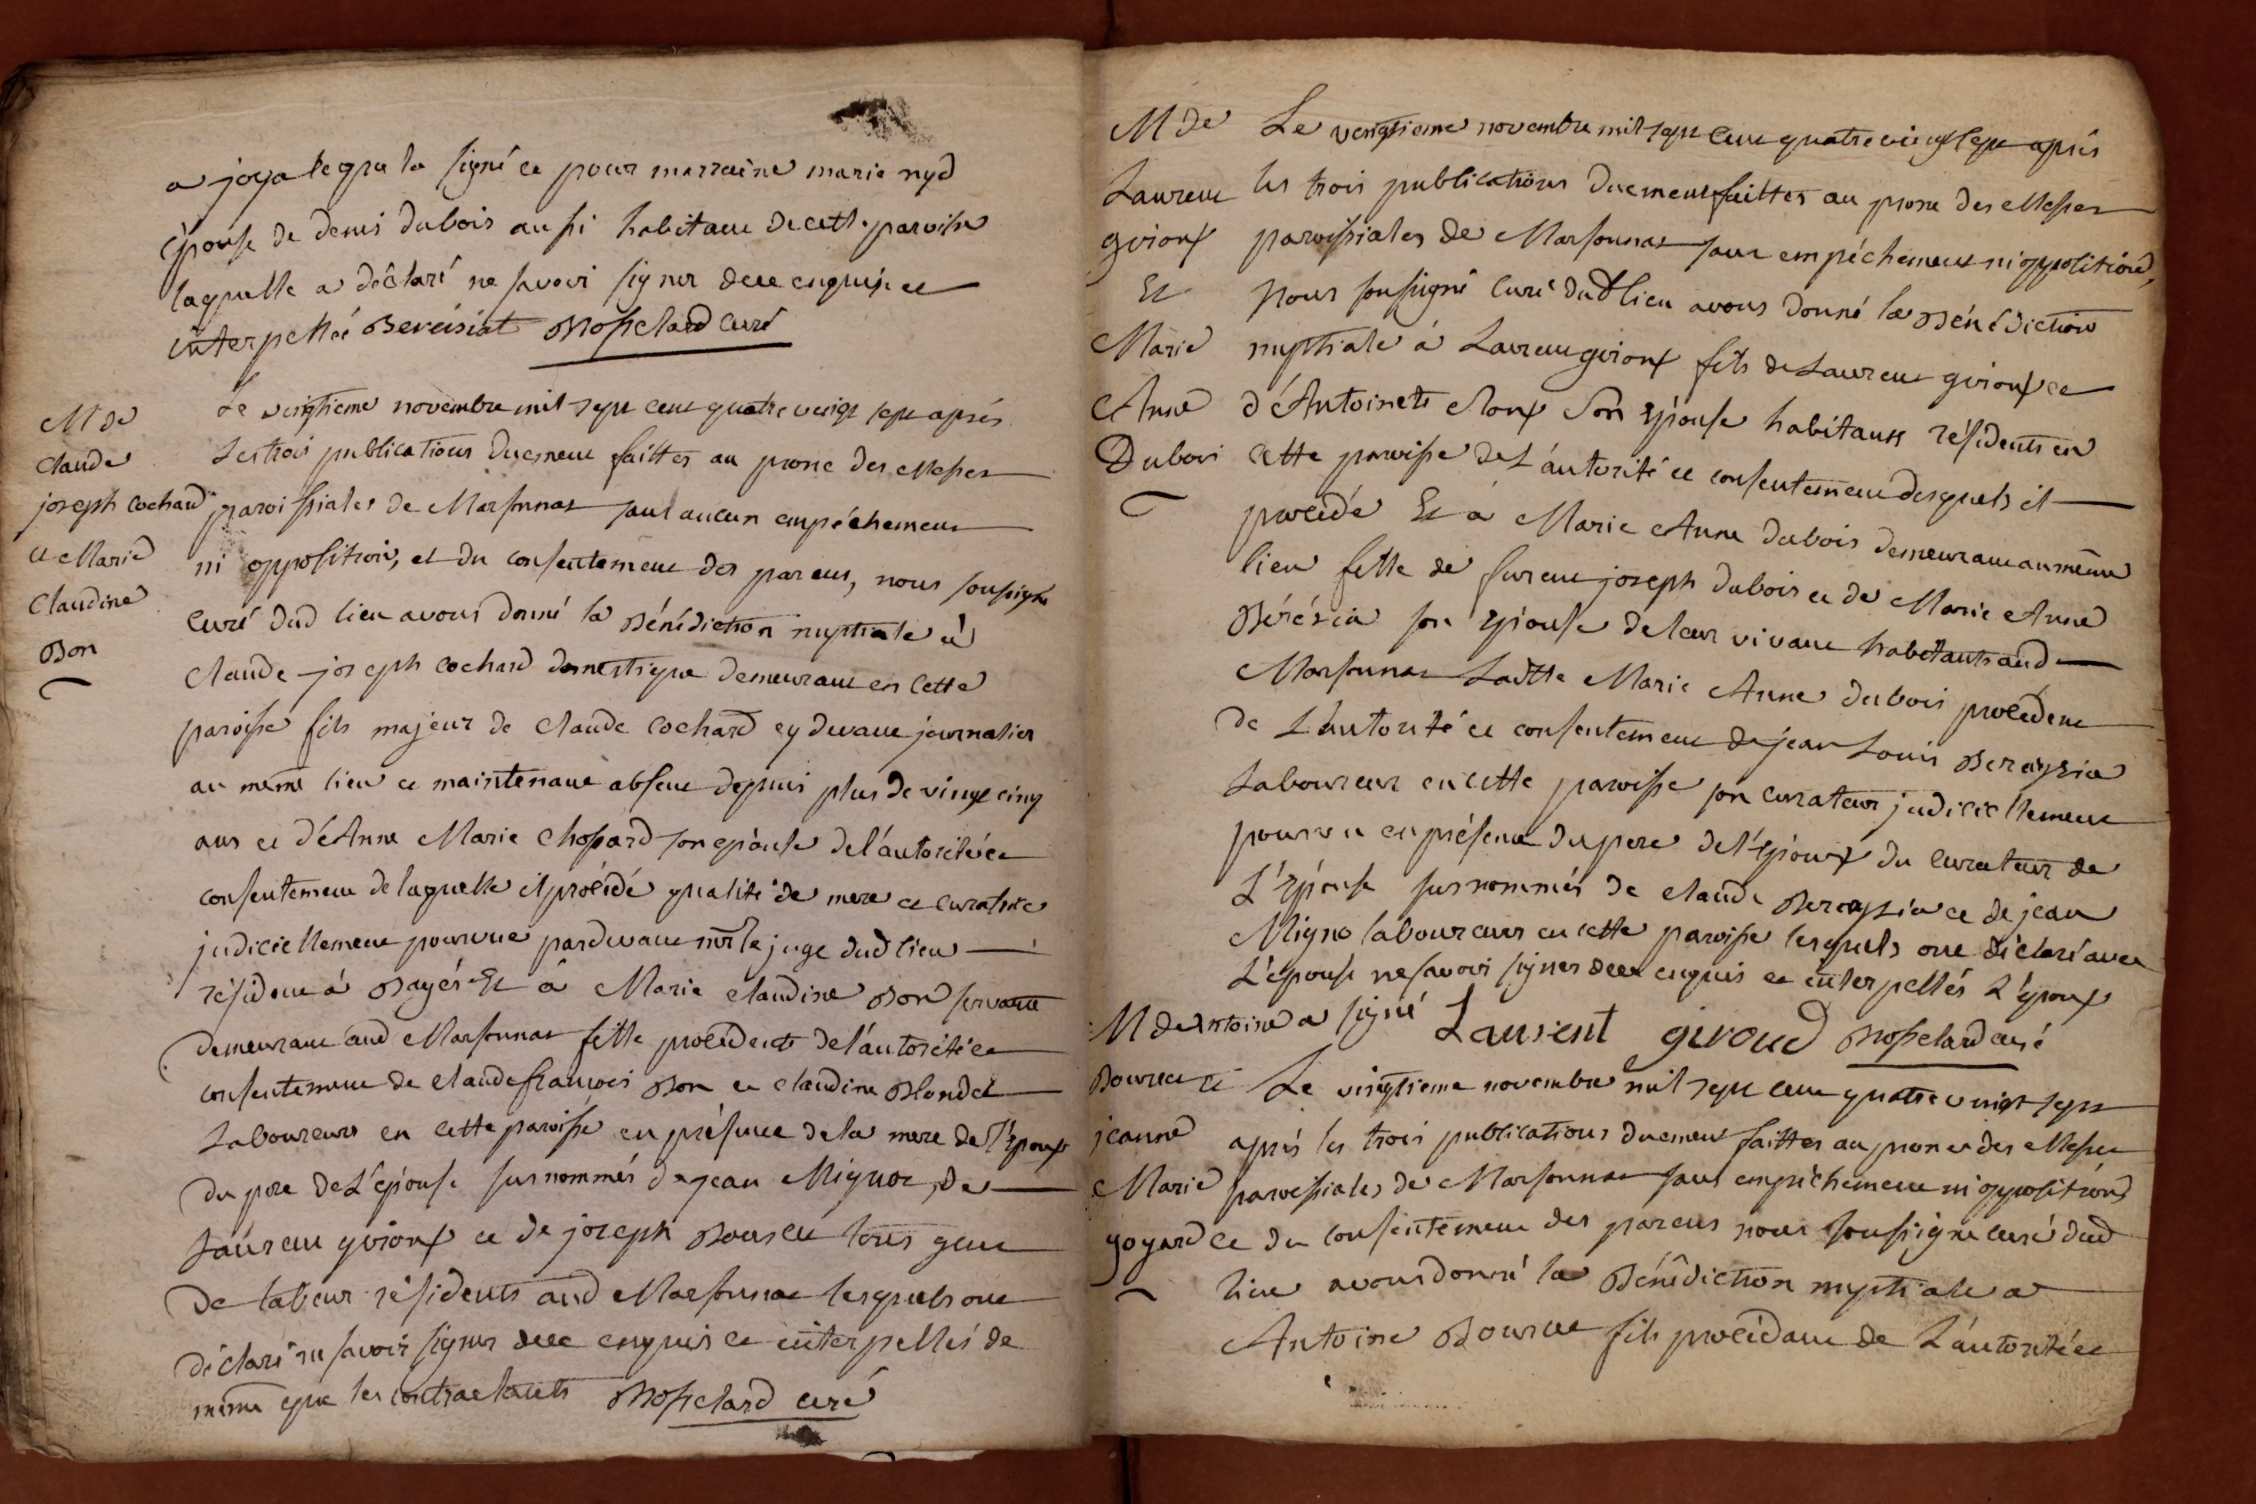 a joya lequel a signé et pour marraine marie nyd
épouse de denis dubois aussi habitant de cette paroisse
laquelle a déclaré ne savoir signer de ce enquise et
interpellée Bereisiat Bosselard curé
M de
Claude
joseph Cochard
et Marie
Claudine
Bon
Le vingtieme novembre mil sept cent quatre vingt sept aprés
Les trois publications duement faittes au prone des Messes
paroissiales de Marsonnas sans aucun empéchement
ni opposition, et du consentement des parens, nous soussigné
Curé dud lieu avons donné la Bénédiction nuptiale à
Claude joseph Cochard domestique demeurant en Cette
paroisse fils majeur de Claude Cochard cy devant journalier
au même lieu et maintenant absent depuis plus de vingt cinq
ans et d'Anne Marie Chossard son épouse de l'autorité et
consentement de laquelle il procéde qualité de mere et curatrice
judiciellement pourvue pardevant mr le juge dud lieu
résident à Bagés Et à Marie Claudine Bon servante
demeurant aud Marsonnas fille procédente de l'autorité et
consentement de Claude françois Bon et Claudine Blondel
Laboureurs en cette paroisse en présence de la mere de l'époux
du pere de L'épouse susnommés de jean Mignot, de
Laurent guioux et de joseph Bourcet tous gens
de labeur résidents aud Marsonnas lesquels ont
déclaré ne savoir signer de ce enquis et interpellés de
même que les contractants Bosselard curé
M de
Laurent
guioux
Et
Marie
Anne
Dubois
Le vingtieme novembre mil sept cent quatre vingt sept aprés
les trois publications duement faittes au prone des Messes
paroissiales de Marsonnas sans empéchement ni opposition,
Nous soussigné Curé dud lieu avons donné la Bénédiction
nuptiale à Laurent guioux fils de Laurent guioux et
d'Antoinette Cloux Son épouse habitants résidents en
cette paroisse de L'autorité et consentement desquels il
procéde Et à Marie Anne dubois demeurant au même
lieu fille de furent joseph dubois et de Marie Anne
Bérézia son épouse de leur vivant habitants aud
Marsonnas Ladtte Marie Anne dubois procédente
de L'autorité et consentement de jean Louis Bereyzia
Laboureur en cette paroisse son curateur judiciellement
pourvu en présence du pere de l'époux du curateur de
L'épouse susnommés de Claude Bereyzia et de jean
Migno laboureurs en cette paroisse lesquels ont déclaré avec
L'épouse ne savoir signer de ce enquis et interpellés L'époux
a signé Laurent giroud Bosselard curé
M de Antoine
Bourcet et
jeanne
Marie
goyard
Le vingtieme novembre mil sept cent quatre vingt sept
aprés les trois publications duement faittes au prone des Messes
paroissiales de Marsonnas sans empéchement ni opposition
et du consentement des parens nous soussigné curé dud
lieu avons donné la Bénédiction nuptiale a
Antoine Bourcet fils procédant de L'autorité et